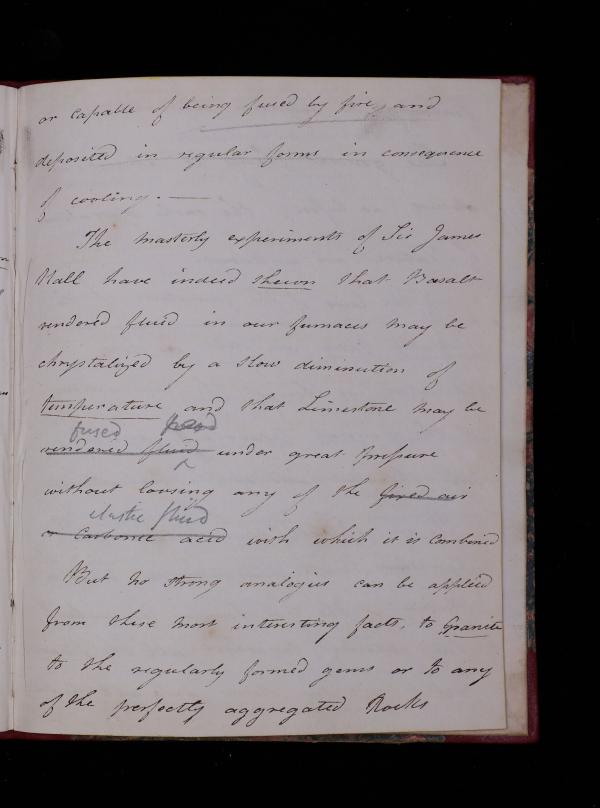 or capable of being fused by fire, and
deposited in regular forms in consequence
of cooling. —
The masterly experiments of Sir James
Hall have indeed shewn that Basalt
rendered fluid in our furnaces may be
chrystalized by a slow diminution of
temperature and that Limestone may be
fused
rendered fluid under great pressure
without loosing any of the fixed air
elastic fluid
or Carbonic acid with which it is combined
But no strong analogies can be applied
from these most interesting facts, to Granite
to the regularly formed gems or to any
of the perfectly aggregated Rocks